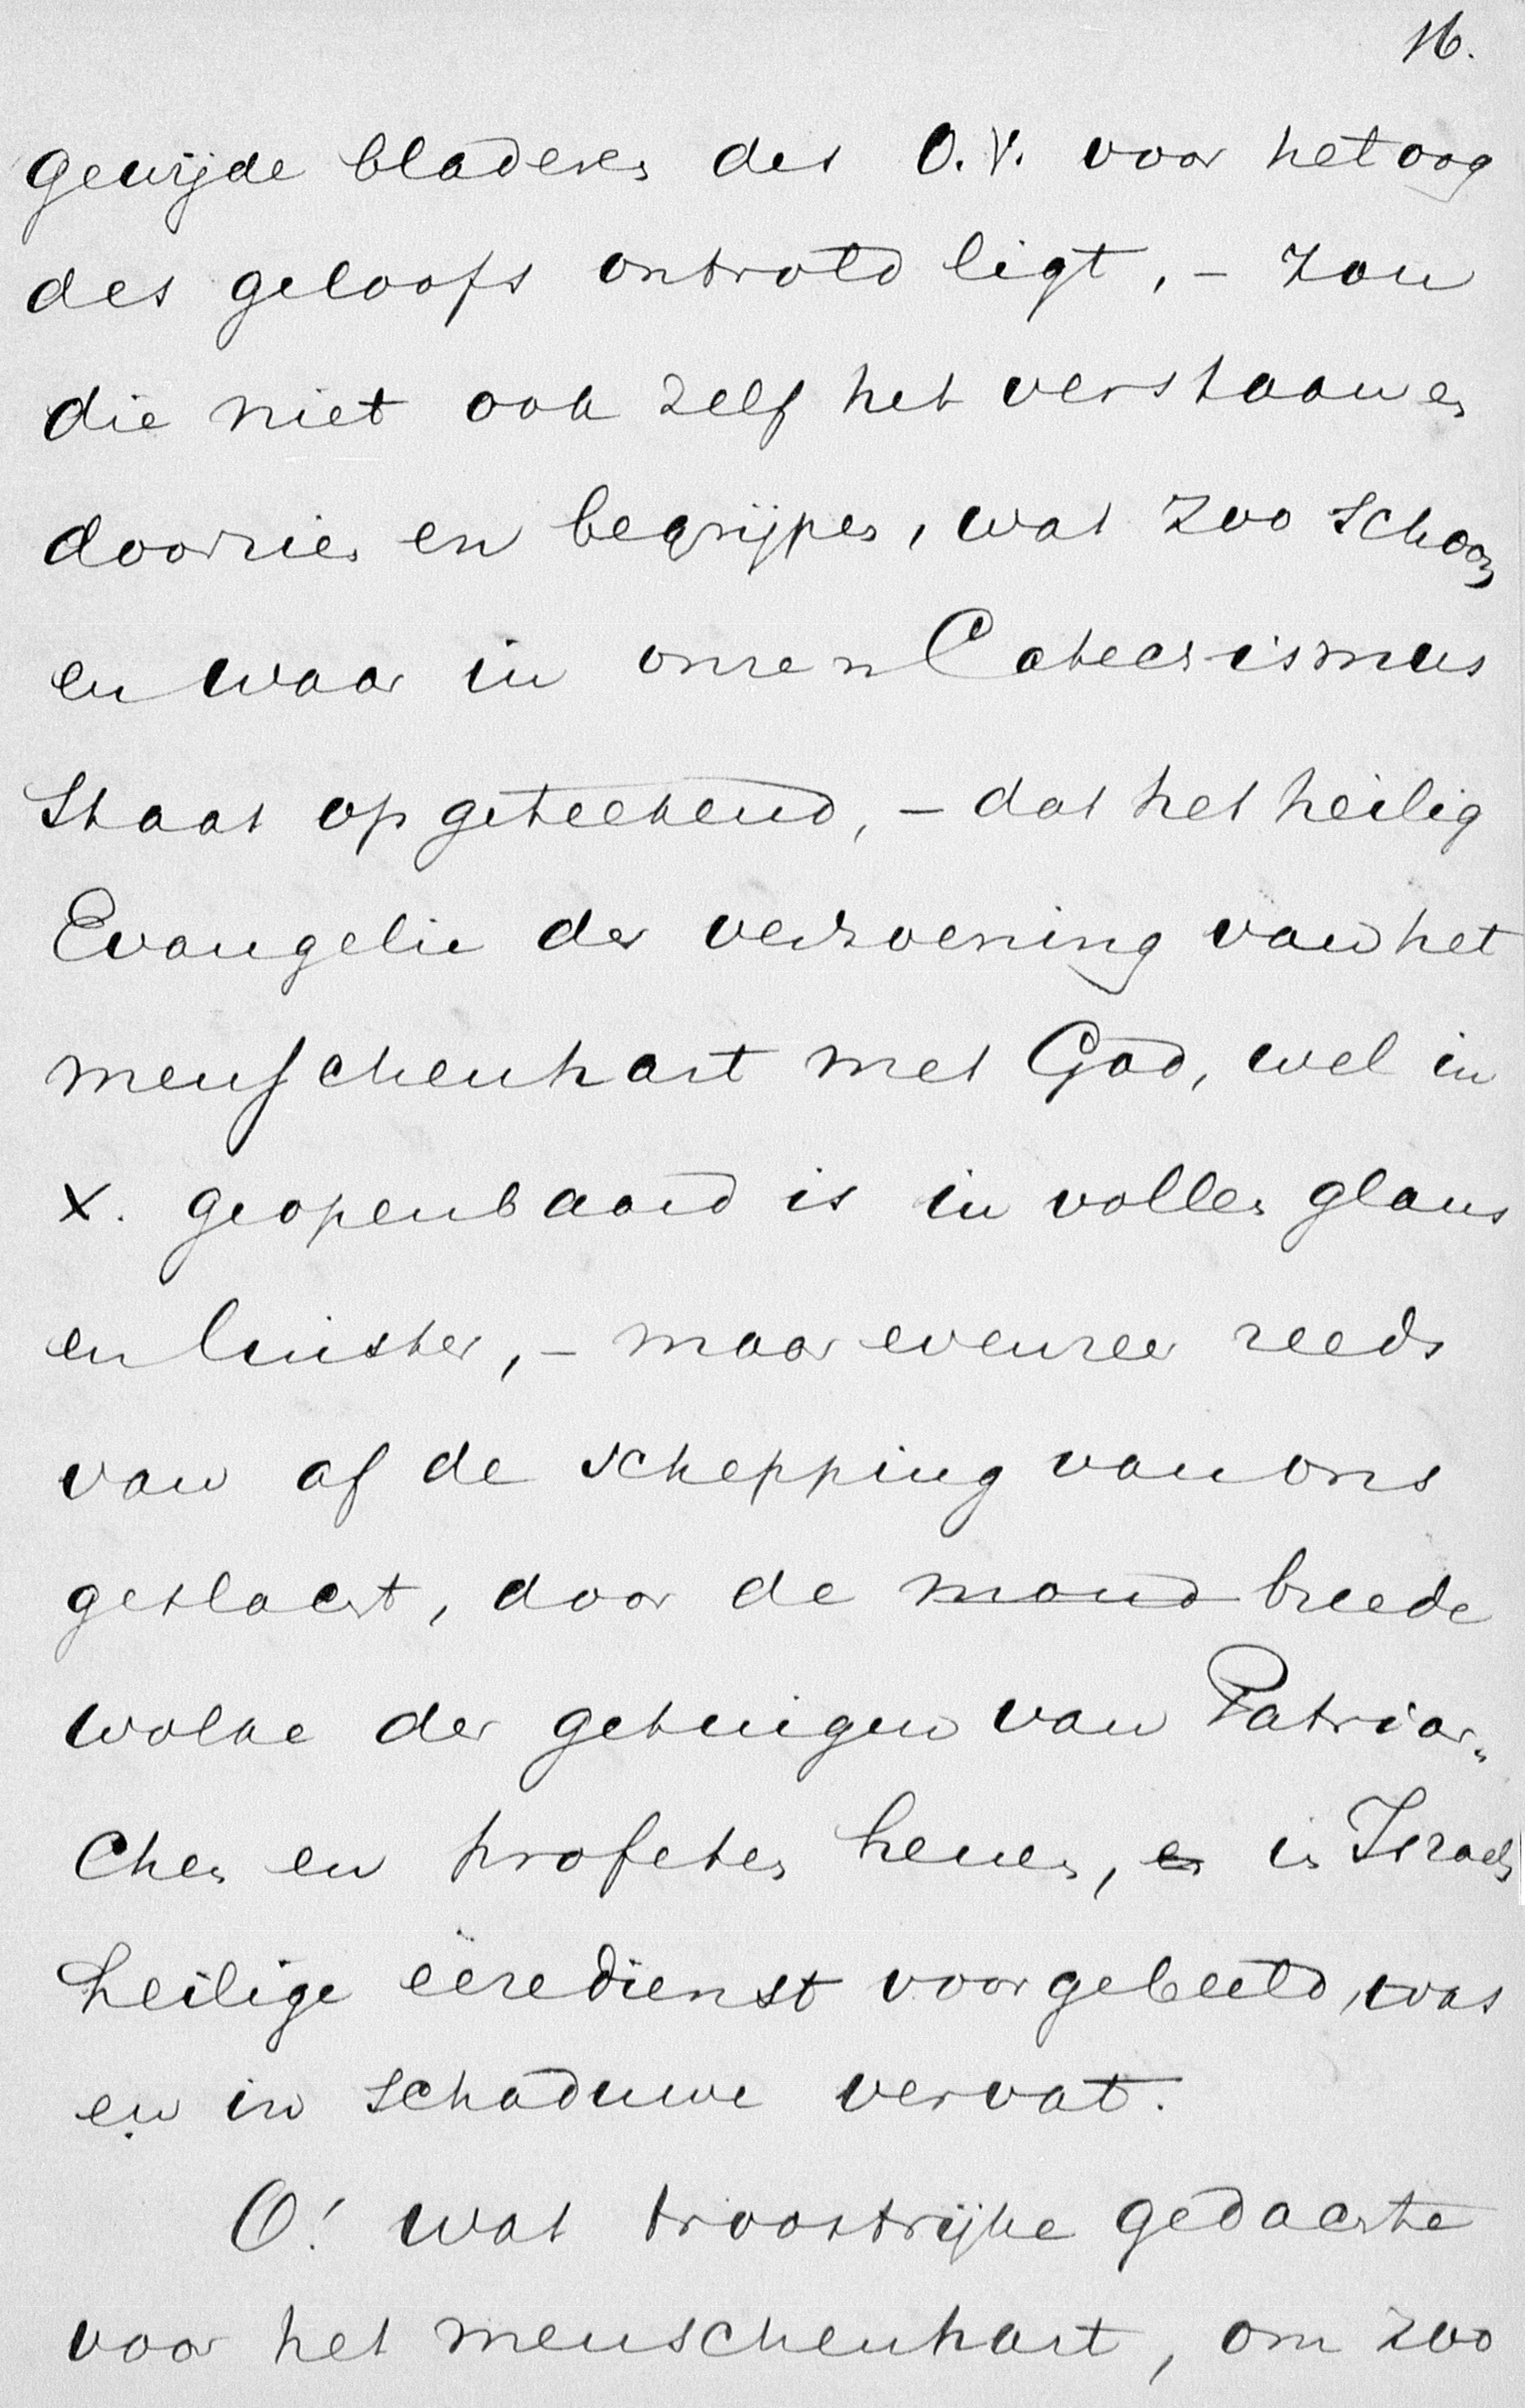 16.
gewijde bladeren des O.V. voor het oog
des geloofs ontrold ligt, – zou
die niet ook zelf het verstaan en
doorzien en begrijpen, wat zoo schoon
en waar in onzen Catechismus
staat opgeteekend, – dat het heilig
Evangelie der verzoening van het
menschenhart met God, wel in
X. geopenbaard is in vollen glans
en luister, – maar evenzeer reeds
van af de schepping van ons
geslacht, door de mond breede
wolke der getuigen van Patriar„
chen en profeten henen, en in Israels
heilige eeredienst voorgebeeld, was
en in schaduwe vervat.
O! wat troostrijke gedachte
voor het menschenhart, om zoo